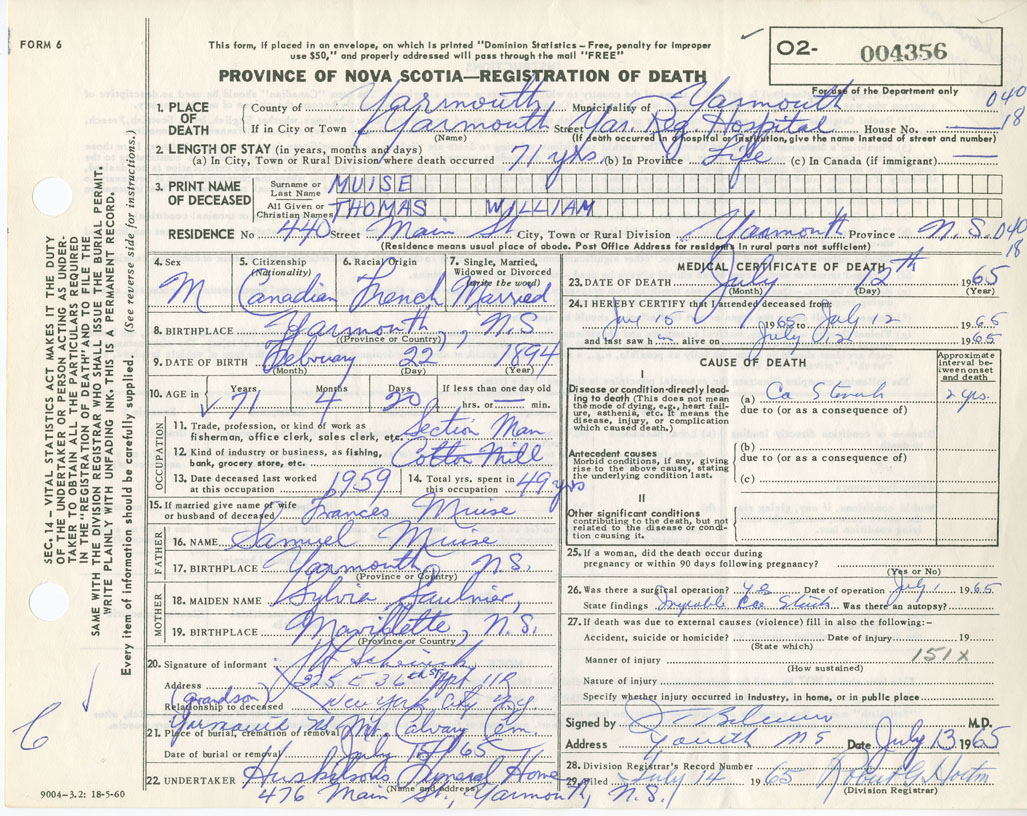 FORM 6
This form, if placed in an envelope, on which is printed "Dominion Statistics – Free, penalty for improper
use $50," and properly addressed will pass through the mail "FREE"
O2- 004356
PROVINCE OF NOVA SCOTIA—REGISTRATION OF DEATH
For use of the Department only
1. PLACE OF DEATH
County of Yarmouth Municipality of Yarmouth 040
If in City or Town Yarmouth Street Yar. Reg. Hospital House No. — 18
(Name) (If death occurred in a hospital or institution, give the name instead of street and number)
2. LENGTH OF STAY (in years, months and days)
(a) In City, Town or Rural Division where death occurred 71 yrs (b) In Province Life (c) In Canada (if immigrant) —
3. PRINT NAME OF DECEASED
Surname or Last Name MUISE
All Given or Christian Names THOMAS WILLIAM
RESIDENCE No 440 Street Main St City, Town or Rural Division Yarmouth Province N.S. 040
18
(Residence means usual place of abode. Post Office Address for residents in rural parts not sufficient)
4. Sex M
5. Citizenship (Nationality) Canadian
6. Racial Origin French
7. Single, Married, Widowed or Divorced (write the word) Married
8. BIRTHPLACE Yarmouth, N.S
(Province or Country)
9. DATE OF BIRTH February 22 1894
(Month) (Day) (Year)
10. AGE in Years 71 Months 4 Days 20 If less than one day old hrs. or — min.
OCCUPATION
11. Trade, profession, or kind of work as fisherman, office clerk, sales clerk, etc. Section Man
12. Kind of industry or business, as fishing, bank, grocery store, etc. Cotton Mill
13. Date deceased last worked at this occupation 1959
14. Total yrs. spent in this occupation 49 yrs
15. If married give name of wife or husband of deceased Frances Muise
FATHER
16. NAME Samuel Muise
17. BIRTHPLACE Yarmouth, N.S.
(Province or Country)
MOTHER
18. MAIDEN NAME Sylvia Saulnier,
19. BIRTHPLACE Mavillette, N.S.
(Province or Country)
20. Signature of informant
Address 225 E 36th St Apt 11R
(Grandson) New York City N.Y.
Relationship to deceased
21. Place of burial, cremation or removal Mt. Calvary Cem.
Date of burial or removal July 15th 65
22. UNDERTAKER Huskilson's Funeral Home
(Name and address)
476 Main St., Yarmouth, N.S.
9004-3.2: 18-5-60
MEDICAL CERTIFICATE OF DEATH
23. DATE OF DEATH July 12th 1965
(Month) (Day) (Year)
24. I HEREBY CERTIFY that I attended deceased from:
1965 to July 12 1965
and last saw h alive on July 12 1965
CAUSE OF DEATH
Approximate interval between onset and death
I
Disease or condition directly leading to death (This does not mean the mode of dying, e.g., heart failure, asthenia, etc. It means the disease, injury, or complication which caused death.)
(a) Ca Stomach 2 yrs.
due to (or as a consequence of)
Antecedent causes
Morbid conditions, if any, giving rise to the above cause, stating the underlying condition last.
(b)
due to (or as a consequence of)
(c)
II
Other significant conditions
contributing to the death, but not related to the disease or condition causing it.
25. If a woman, did the death occur during pregnancy or within 90 days following pregnancy?
(Yes or No)
26. Was there a surgical operation? Yes Date of operation July 1 1965
State findings Was there an autopsy?
27. If death was due to external causes (violence) fill in also the following:—
Accident, suicide or homicide? Date of injury 19
(State which)
Manner of injury 151X
(How sustained)
Nature of injury
Specify whether injury occurred in industry, in home, or in public place
Signed by M.D.
Address Date July 13 1965
28. Division Registrar's Record Number
29. Filed July 14 1965 Robert G Horton
(Division Registrar)
SEC. 14 – VITAL STATISTICS ACT MAKES IT THE DUTY
OF THE UNDERTAKER OR PERSON ACTING AS UNDER-
TAKER TO OBTAIN ALL THE PARTICULARS REQUIRED
IN THE "REGISTRATION OF DEATH" AND TO FILE THE
SAME WITH THE DIVISION REGISTRAR WHO SHALL ISSUE THE BURIAL PERMIT.
WRITE PLAINLY WITH UNFADING INK. THIS IS A PERMANENT RECORD.
Every item of information should be carefully supplied. (See reverse side for instructions.)